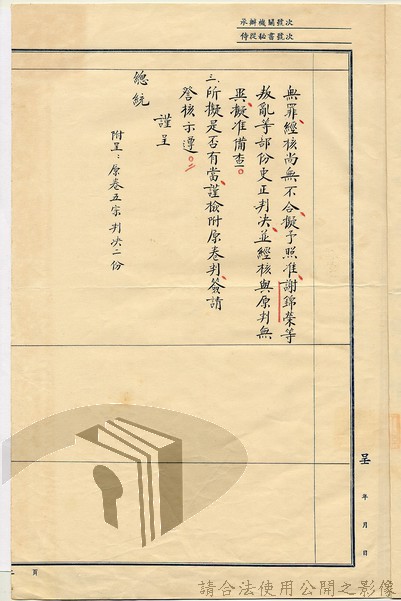 承辦機關號次
侍從秘書號次
無罪經核尚無不合擬予照准謝錦榮等
叛亂等部份更正判決並經核與原判無
異擬准備查。
三、所擬是否有當謹檢附原卷判簽請
詧核示遵。
謹呈
總統
附呈：原卷五宗判決二份
呈
年
月
日
頁
請合法使用公開之影像